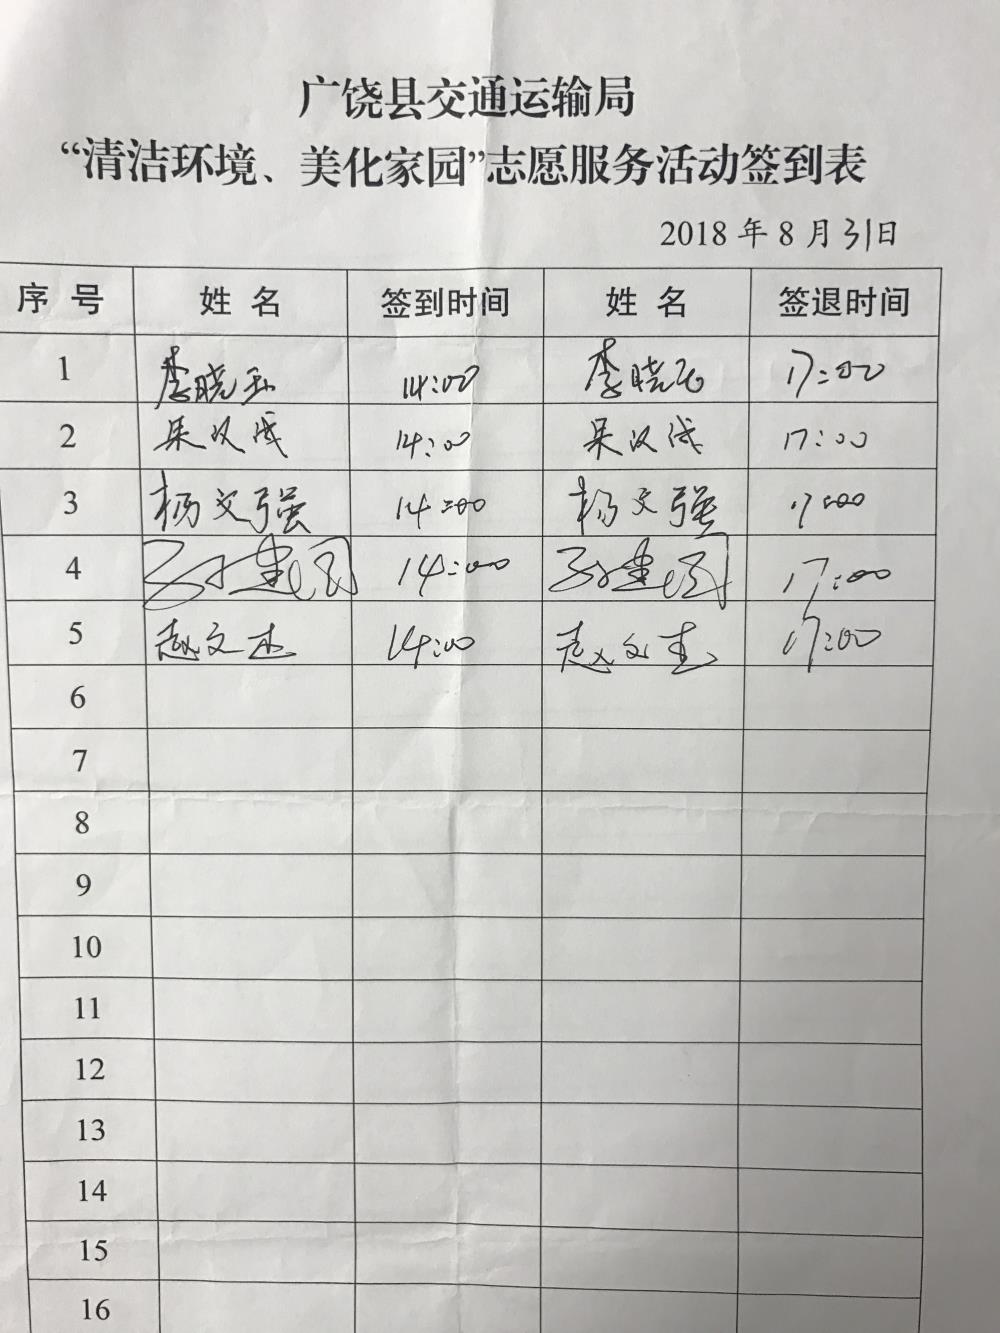 广饶县交通运输局
“清洁环境、美化家园”志愿服务活动签到表
2018 年 8 月 31日
序 号 姓 名 签到时间 姓 名 签退时间
1 李晓 14:00 李晓 17:00
2 吴汉成 14:00 吴汉成 17:00
3 杨文强 14:00 杨文强 17:00
4 孙建国 14:00 孙建国 17:00
5 赵文杰 14:00 赵文杰 17:00
6
7
8
9
10
11
12
13
14
15
16